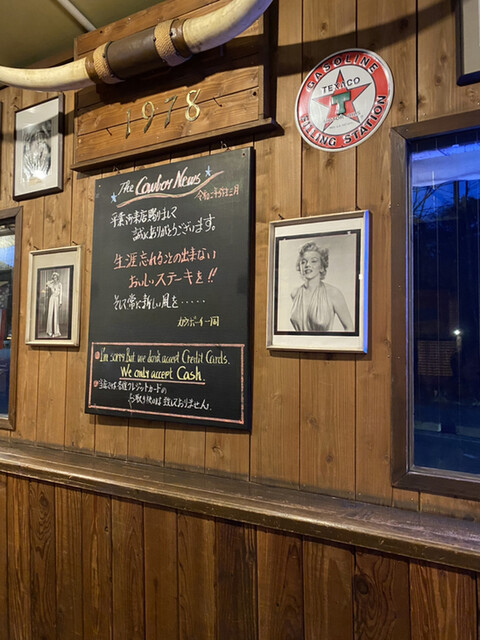 1978
GASOLINE
TEXACO
T
FILLING STATION
The Cowboy News
平素は御来店賜りまして
誠にありがとうございます。
生涯忘れることの出来ない
おいしいステーキを!!
そして常に新しい風を・・・・・
カウボーイ一同
I'm sorry. But we don't accept Credit Cards.
We only accept Cash.
当店では各種クレジットカードの
お取り扱いは致しておりません。